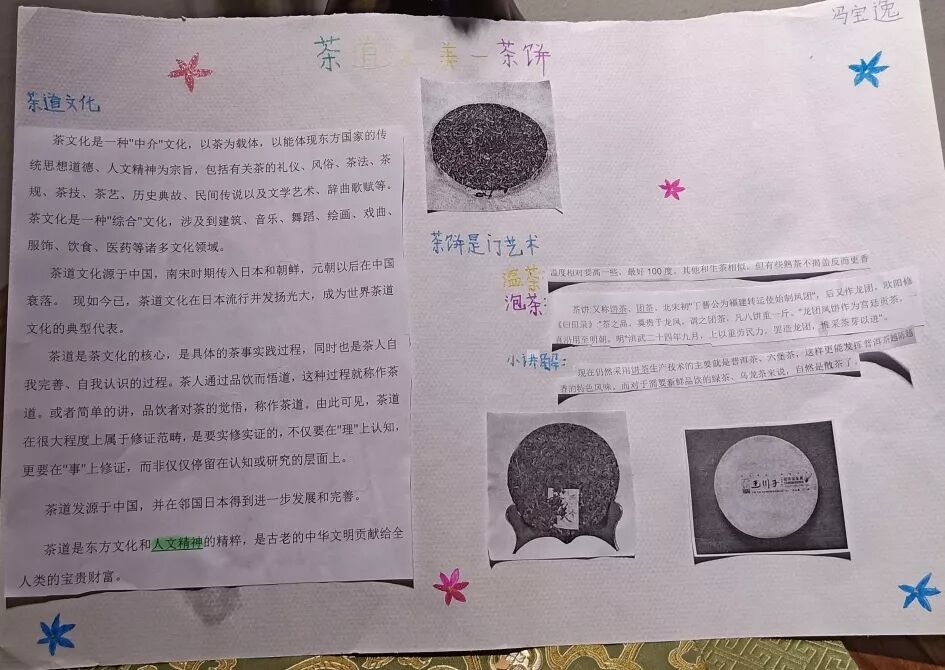 冯宝逸
茶道之美一茶饼
茶道文化
茶文化是一种"中介"文化，以茶为载体，以能体现东方国家的传
统思想道德、人文精神为宗旨，包括有关茶的礼仪、风俗、茶法、茶
规、茶技、茶艺、历史典故、民间传说以及文学艺术、辞曲歌赋等。
茶文化是一种"综合"文化，涉及到建筑、音乐、舞蹈、绘画、戏曲、
服饰、饮食、医药等诸多文化领域。
茶道文化源于中国，南宋时期传入日本和朝鲜，元朝以后在中国
衰落。 现如今已，茶道文化在日本流行并发扬光大，成为世界茶道
文化的典型代表。
茶道是茶文化的核心，是具体的茶事实践过程，同时也是茶人自
我完善、自我认识的过程。茶人通过品饮而悟道，这种过程就称作茶
道。或者简单的讲，品饮者对茶的觉悟，称作茶道。由此可见，茶道
在很大程度上属于修证范畴，是要实修实证的，不仅要在"理"上认知，
更要在"事"上修证，而非仅仅停留在认知或研究的层面上。
茶道发源于中国，并在邻国日本得到进一步发展和完善。
茶道是东方文化和人文精神的精粹，是古老的中华文明贡献给全
人类的宝贵财富。
茶饼是门艺术
温茶
温度相对要高一些、最好100度，其他和生茶相似，但有些熟茶不揭盖反而更香
泡茶：
茶饼:又称团茶，北宋初"丁晋公为福建转运使始制凤团"，后又作龙团，欧阳修
《归田录》"茶之品，莫贵于龙凤，谓之团茶，凡八饼重一斤。"龙团凤饼作为宫廷贡茶，一
直沿用至明朝，明"洪武二十四年九月，上以重劳民力，罢造龙团，惟采茶芽以进"。
小讲解：
现在仍然采用团茶生产技术的主要就是普洱茶、六堡茶，这样更能发挥普洱茶越陈越
香的特色风味，而对于需要新鲜品饮的绿茶、乌龙茶来说，自然是散茶了。
玉川子